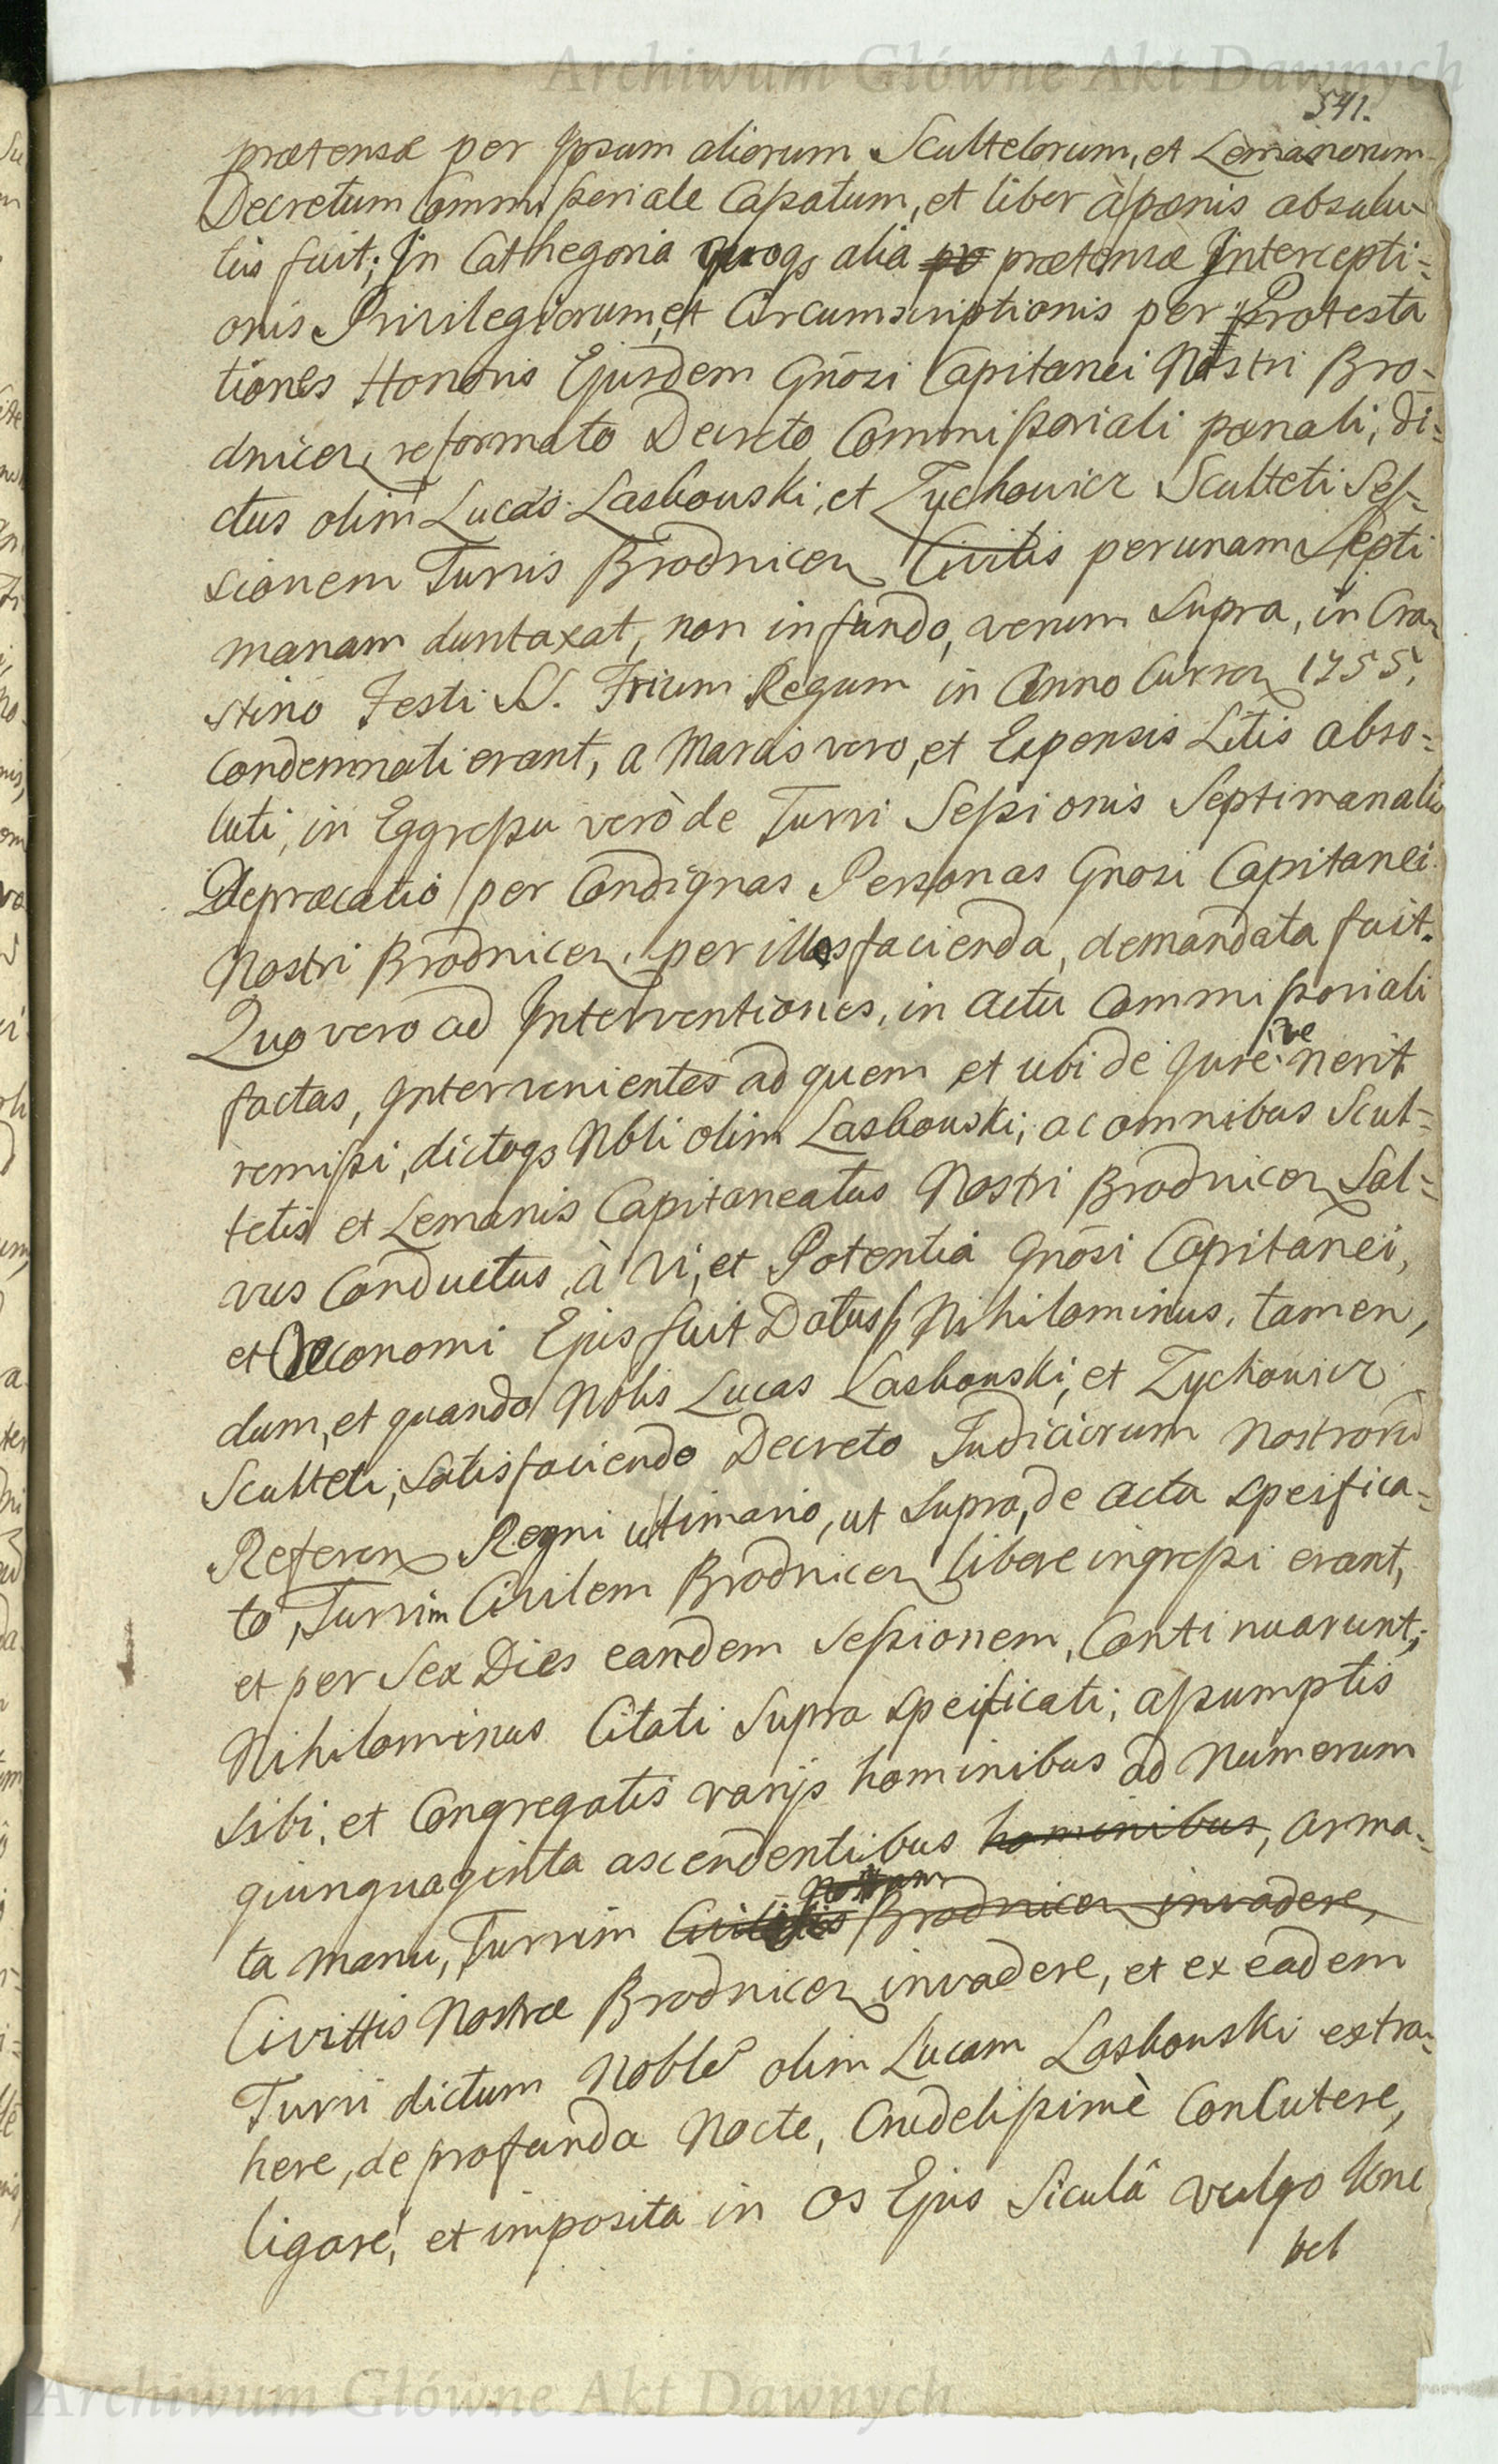 Archiwum Główne Akt Dawnych
541.
prætensæ per Ipsum aliorum Scultetorum, et Lemanorum
Decretum Commissoriale Cassatum, et liber à pœnis absolu-
tus fuit; In Cathegoria quoqs alia pr prætensæ Intercepti=
onis Privilegiorum, et Circumscriptionis per Protesta
tiones Honoris Ejusdem Gnōsi Capitanei Nostri Bro-
dnicen, reformato Decreto Commissoriali pœnali, di=
ctus olim Lucas Laskouski, et Zychouicz Sculteti Ses-
sionem Turris Brodnicen Civilis per unam Septi
manam duntaxat, non in fundo, verum Supra, in Cra-
stino Festi SS. Trium Regum in Anno Curren 1755.
Condemnati erant, a Marcis vero, et Expensis Litis abso=
luti, in Eggressu verò de Turri Sessionis Septimanalis
Depræcatio per Condignas Personas Gnosi Capitanei
Nostri Brodnicen, per illos facienda, demandata fuit.
Quo vero ad Interventiones, in Actu Commissoriali
factas, Intervenientes ad quem et ubi de Jure venerit
remissi, dictoqs Nbli olim Laskouski, ac omnibus Scul=
tetis et Lemanis Capitaneatus Nostri Brodnicen Sal=
vus Conductus, à Vi, et Potentia Gnōsi Capitanei,
et Oeconomi Ejus fuit Datus, Nihilominus, tamen,
dum, et quando Nblis Lucas Laskouski, et Zychouicz
Sculteti, Satisfaciendo Decreto Judiciorum Nostrorū
Referen Regni ultimario, ut Supra, de Actu Spesifica=
to, Turrim Civilem Brodnicen libere ingressi erant,
et per Sex Dies eandem Sessionem, Continuarunt;
Nihilominus Citati Supra Speificati, assumptis
Sibi, et Congregatis varijs hominibus ad Numerum
quinquaginta ascendentibus hominibus, arma=
ta Manu, Turrim Civilis Nostram Brodnicen invadere,
Civittis Nostræ Brodnicen invadere, et ex eadem
Turri dictum Noble olim Lucam Laskouski extra-
here, de profunda Nocte, Crudelissimè Concutere,
ligare, et imposita in Os Ejus Siculâ vulgo Kne
bel
Archiwum Główne Akt Dawnych